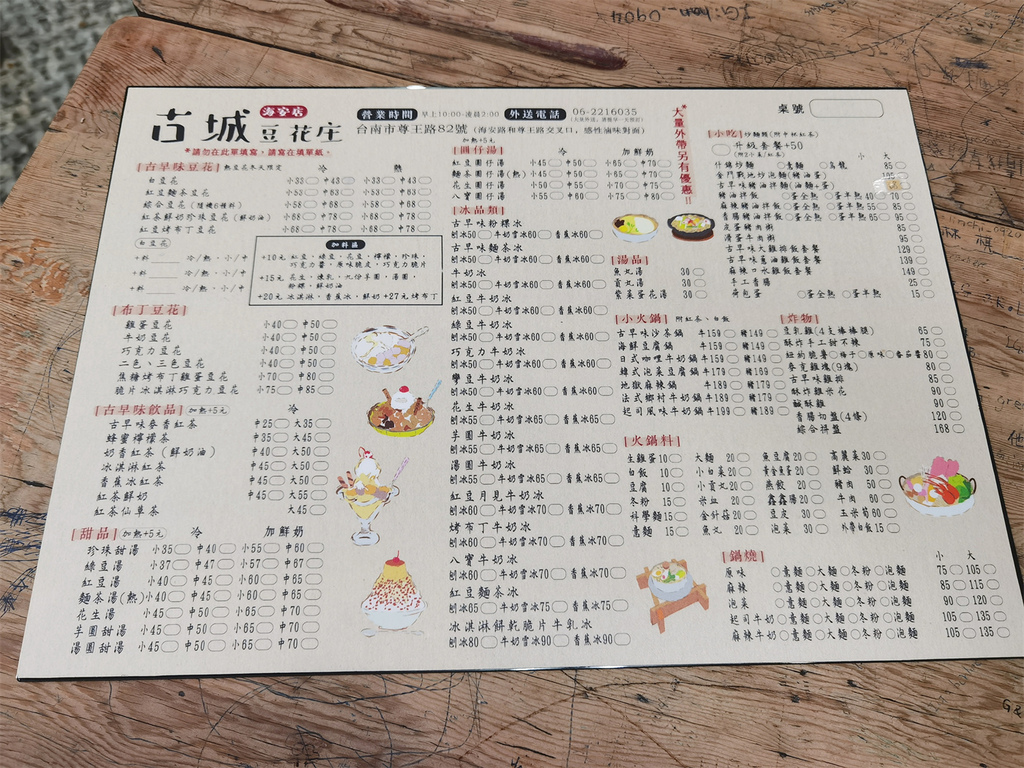 古城 豆花庄 海安店
*請勿在此單填寫,請寫在填單紙。
營業時間 早上10:00-凌晨2:00 外送電話 06-2216035
台南市尊王路82號 (海安路和尊王路交叉口,感性滷味對面)
大量外帶另有優惠!!
桌號
古早味豆花 熱豆花冬天限定 冷 熱
白豆花 小33 中43 小33 中43
紅豆麵茶豆花 小53 中83 小53 中83
綜合豆花(隨機6種料) 小58 中68 小58 中68
紅茶鮮奶珍珠豆花(鮮奶油) 小68 中78 小68 中78
紅豆烤布丁豆花 小68 中78 小68 中78
白豆花
+料 冷/熱,小/中
+料 冷/熱,小/中
+料 冷/熱,小/中
加料區
+10元 紅豆,綠豆,花豆,檸檬,珍珠,
巧克力醬,原味脆皮,巧克力脆片
+15元 花生,燉乳,九份芋圓,湯圓,
粉粿,鮮奶油
+20元 冰淇淋,香蕉冰,鮮奶 +27元 烤布丁
布丁豆花
雞蛋豆花 小40 中50
牛奶豆花 小40 中50
巧克力豆花 小40 中50
二色、三色豆花 小40 中50
焦糖烤布丁雞蛋豆花 小70 中80
脆片冰淇淋巧克力豆花 小75 中85
古早味飲品 加熱+5元 冷
古早味麥香紅茶 中25 大35
蜂蜜檸檬茶 中35 大45
奶香紅茶(鮮奶油) 中40 大50
冰淇淋紅茶 中45 大50
香蕉冰紅茶 中45 大50
紅茶鮮奶 中45 大55
紅茶仙草茶 大50
甜品 加熱+5元 冷 加鮮奶
珍珠甜湯 小35 中40 小55 中60
綠豆湯 小37 中47 小57 中67
紅豆湯 小40 中45 小60 中65
麵茶湯(熱) 小40 中45 小60 中65
花生湯 小45 中50 小65 中70
芋圓甜湯 小45 中50 小65 中70
湯圓甜湯 小45 中50 小65 中70
加熱+5元
圓仔湯 冷 加鮮奶
紅豆圓仔湯 小45 中50 小65 中70
麵茶圓仔湯(熱) 小45 中50 小65 中70
花生圓仔湯 小50 中55 小70 中75
八寶圓仔湯 小55 中60 小75 中80
冰品類
古早味粉粿冰
刨冰50 牛奶雪冰60 香蕉冰60
古早味麵茶冰
刨冰50 牛奶雪冰60 香蕉冰60
牛奶冰
刨冰50 牛奶雪冰60 香蕉冰60
紅豆牛奶冰
刨冰50 牛奶雪冰60 香蕉冰60
綠豆牛奶冰
刨冰50 牛奶雪冰60 香蕉冰60
巧克力牛奶冰
刨冰50 牛奶雪冰60 香蕉冰60
雙豆牛奶冰
刨冰50 牛奶雪冰60 香蕉冰60
花生牛奶冰
刨冰55 牛奶雪冰65 香蕉冰65
芋圓牛奶冰
刨冰55 牛奶雪冰65 香蕉冰65
湯圓牛奶冰
刨冰55 牛奶雪冰65 香蕉冰65
紅豆月見牛奶冰
刨冰60 牛奶雪冰70 香蕉冰70
烤布丁牛奶冰
刨冰60 牛奶雪冰70 香蕉冰70
八寶牛奶冰
刨冰60 牛奶雪冰70 香蕉冰70
紅豆麵茶冰
刨冰65 牛奶雪冰75 香蕉冰75
冰淇淋餅乾脆片牛乳冰
刨冰80 牛奶雪冰90 香蕉冰90
湯品
魚丸湯 30
貢丸湯 30
紫菜蛋花湯 30
小吃 炒麵類(附中杯紅茶)
升級套餐+50
小 大
什錦炒麵 意麵 烏龍 85
金門戰地炒泡麵(豬油蛋) 105
古早味豬油拌麵(油麵+蛋)
豬油拌飯 蛋全熟 蛋半熟 40 70
麻辣豬油拌飯 蛋全熟 蛋半熟 55 85
香腸豬油拌飯 蛋全熟 蛋半熟 65 95
皮蛋豬肉粥 85
滑蛋牛肉粥 95
古早味大雞排飯套餐 129
古早味蔥油雞飯套餐 139
麻辣口水雞飯套餐 149
手工香腸 25
荷包蛋 蛋全熟 蛋半熟 15
小火鍋 附紅茶、白飯
古早味沙茶鍋 牛159 豬149
海鮮豆腐鍋 牛159 豬149
日式咖哩牛奶鍋 牛159 豬149
韓式泡菜豆腐鍋 牛179 豬169
地獄麻辣鍋 牛189 豬179
法式鄉村牛奶鍋 牛189 豬179
起司風味牛奶鍋 牛199 豬189
炸物
豆乳雞(4支棒棒腿) 65
酥炸手工甜不辣 75
紐約脆薯 梅子 原味 番茄醬 80
麥克雞塊(9塊) 80
古早味雞排 85
酥炸雞米花 90
鹹酥雞 90
香腸切盤(4條) 120
綜合拼盤 168
火鍋料
生雞蛋10 大麵 20 魚豆腐20 高麗菜30
白飯 10 小白菜20 黃金魚蛋20 鮮蛤 30
豆腐 10 小貢丸20 燕餃 20 豬肉 50
冬粉 15 米血 20 鑫鑫腸20 牛肉 60
科學麵15 金針菇20 豆皮 30 玉米筍60
意麵 15 魚丸 20 泡菜 30 外帶白飯15
鍋燒 小 大
原味 意麵 大麵 冬粉 泡麵 75 105
麻辣 意麵 大麵 冬粉 泡麵 85 115
泡菜 意麵 大麵 冬粉 泡麵 90 120
起司牛奶 意麵 大麵 冬粉 泡麵 105 135
麻辣牛奶 意麵 大麵 冬粉 泡麵 105 135